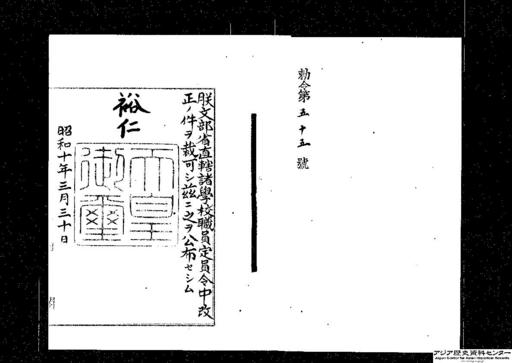 勅令第五十五號
朕文部省直轄諸學校職員定員令中改
正ノ件ヲ裁可シ茲ニ之ヲ公布セシム
裕仁
天皇
御璽
昭和十年三月三十日
アジア歴史資料センター
Japan Center for Asian Historical Records